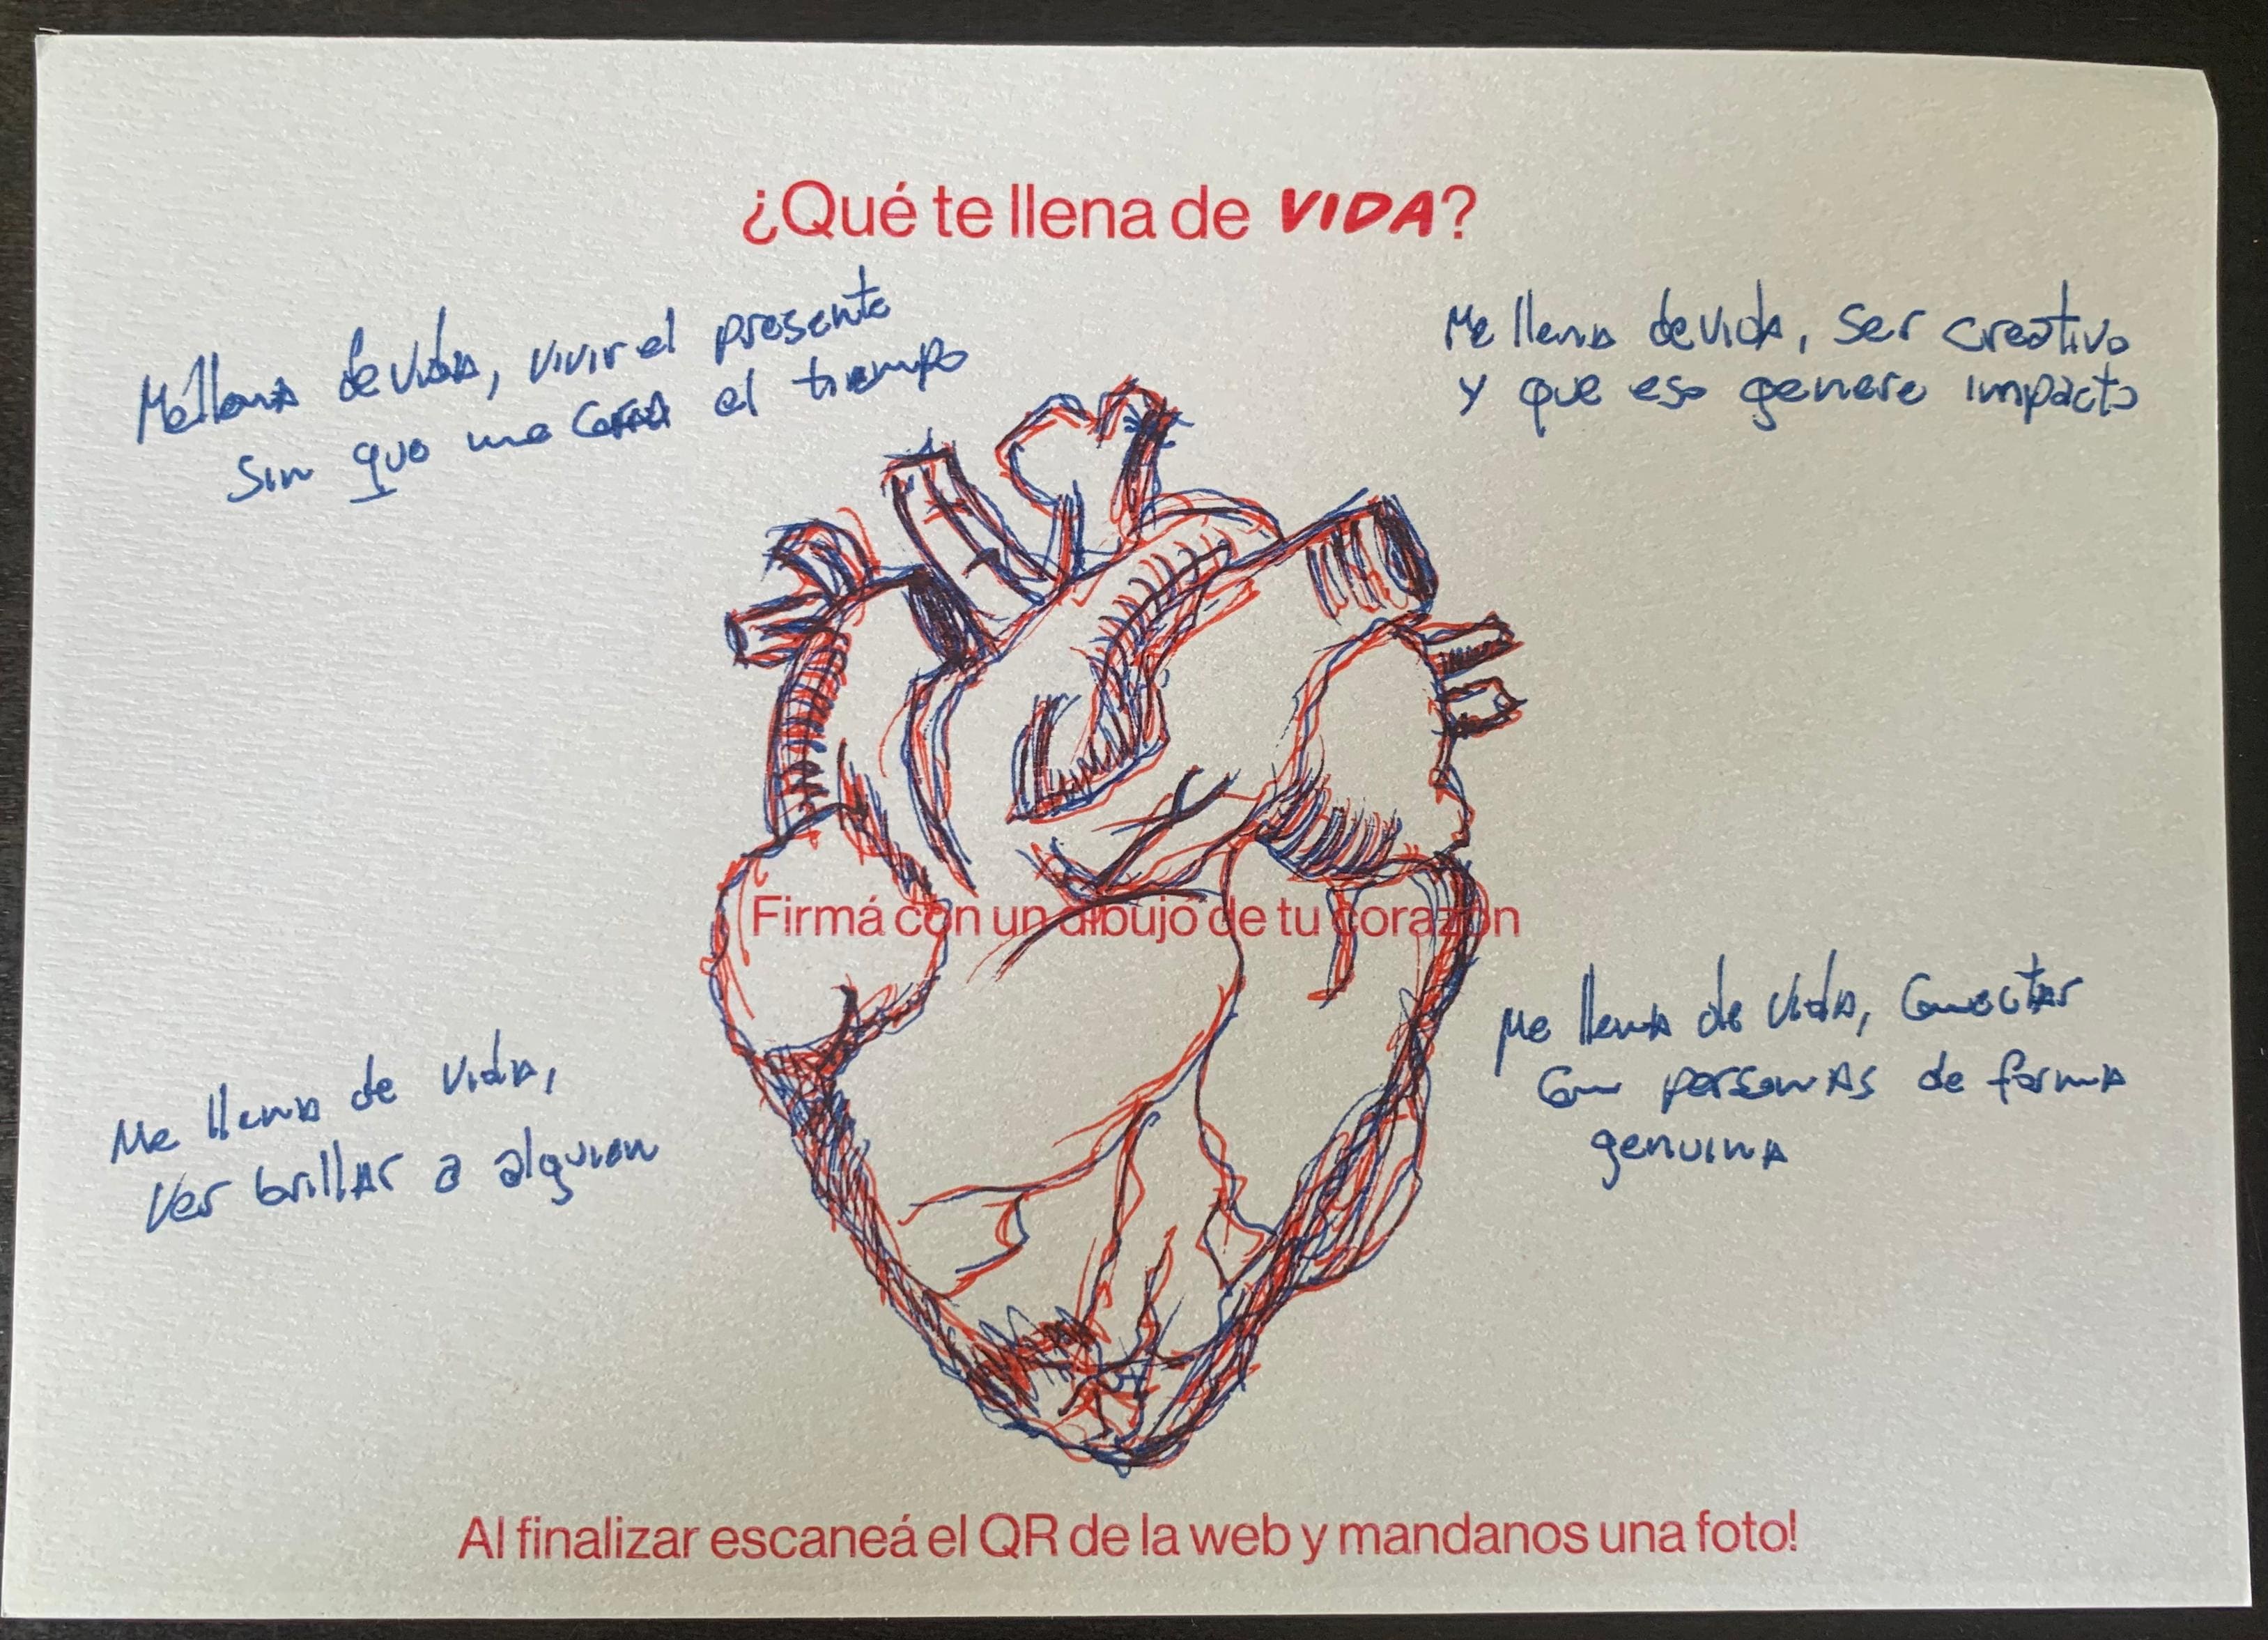 ¿Qué te llena de VIDA?
Me llena de vida, vivir el presente
sin que me corra el tiempo
Me llena de vida, ser creativo
y que eso genere impacto
Firmá con un dibujo de tu corazón
Me llena de vida,
ver brillar a alguien
Me llena de vida, conectar
con personas de forma
genuina
Al finalizar escaneá el QR de la web y mandanos una foto!